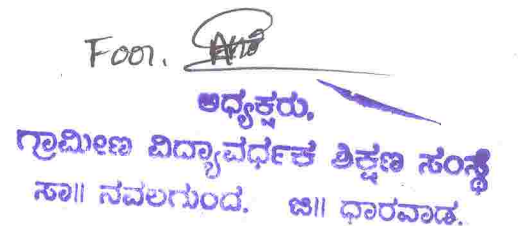 For.
ಅಧ್ಯಕ್ಷರು,
ಗ್ರಾಮೀಣ ವಿದ್ಯಾವರ್ಧಕ ಶಿಕ್ಷಣ ಸಂಸ್ಥೆ
ಸಾ॥ ನವಲಗುಂದ. ಜಿ॥ ಧಾರವಾಡ.